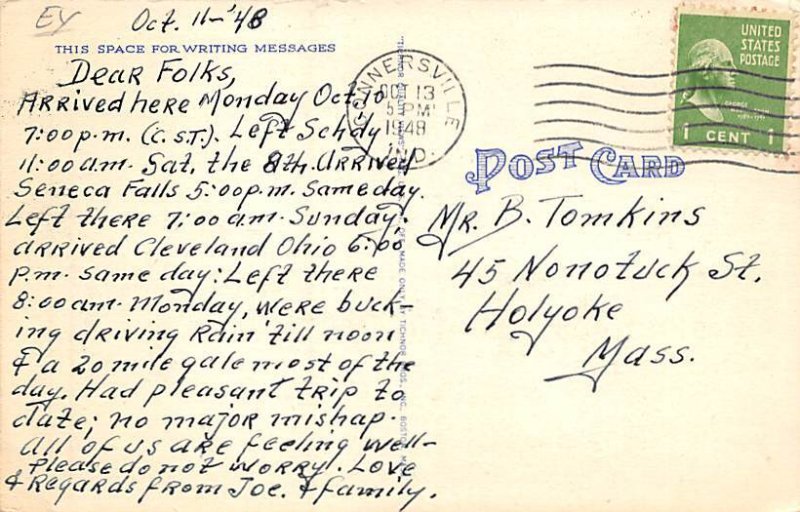 EY
Oct. 11-'48
THIS SPACE FOR WRITING MESSAGES
Dear Folks,
Arrived here Monday Oct 10
7:00 p.m. (C.S.T.). Left Schdy
11:00 am. Sat. the 8th. Arrived
Seneca Falls 5:00 p.m. same day.
Left there 7:00 am. Sunday,
arrived Cleveland Ohio 6:00
p.m. same day: Left there
8:00 am. Monday, were buck-
ing driving Rain 'till noon
& a 20 mile gale most of the
day. Had pleasant trip to
date; no major mishap.
All of us are feeling well-
please do not worry. Love
& Regards from Joe. & family.
CONNERSVILLE
OCT 13
5 PM
1948
IND.
UNITED
STATES
POSTAGE
1 CENT 1
POST CARD
Mr. B. Tomkins
45 Nonotuck St.
Holyoke
Mass.